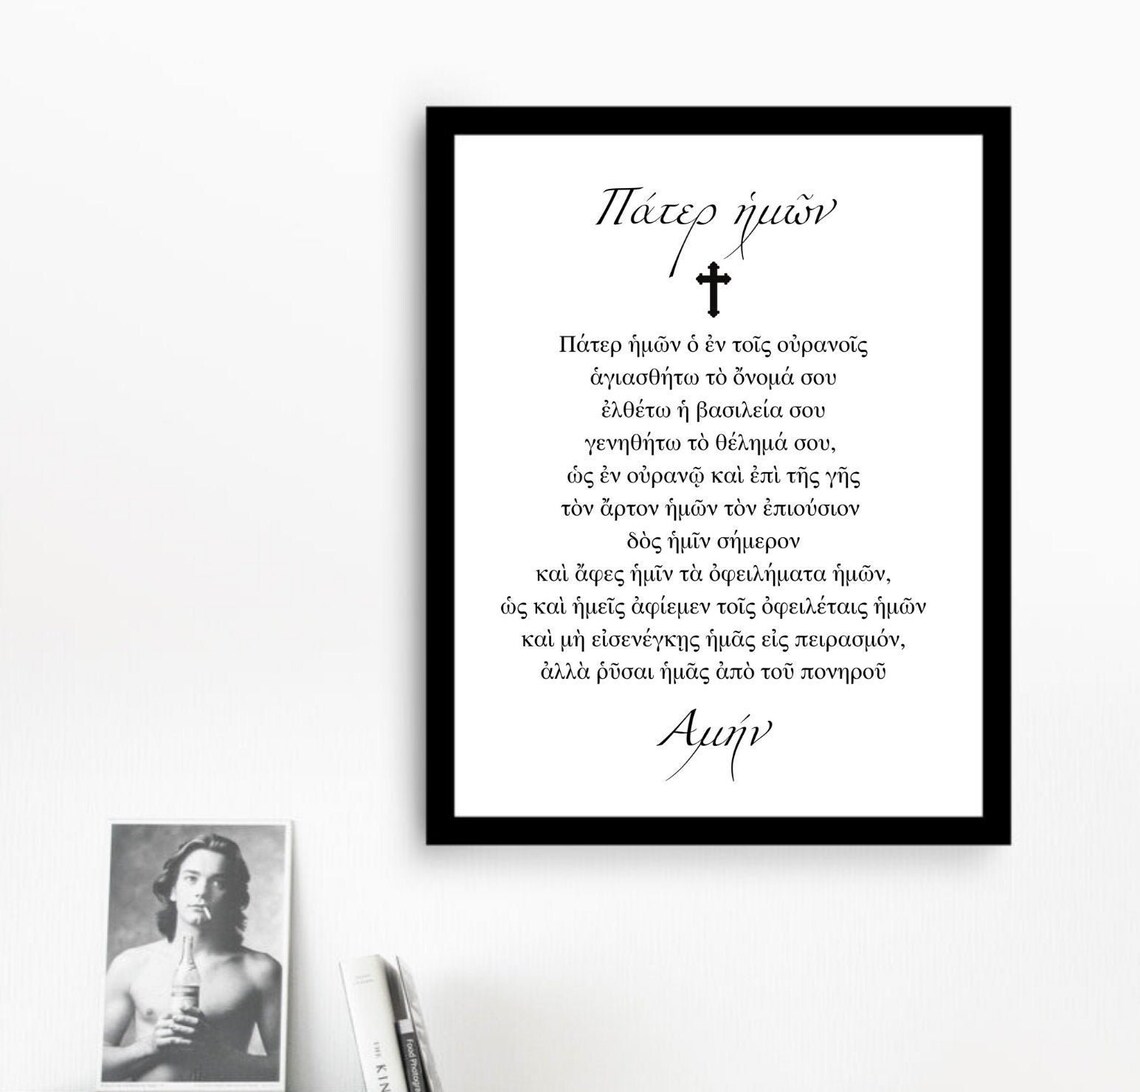 Πάτερ ἡμῶν
Πάτερ ἡμῶν ὁ ἐν τοῖς οὐρανοῖς
ἁγιασθήτω τὸ ὄνομά σου
ἐλθέτω ἡ βασιλεία σου
γενηθήτω τὸ θέλημά σου,
ὡς ἐν οὐρανῷ καὶ ἐπὶ τῆς γῆς
τὸν ἄρτον ἡμῶν τὸν ἐπιούσιον
δὸς ἡμῖν σήμερον
καὶ ἄφες ἡμῖν τὰ ὀφειλήματα ἡμῶν,
ὡς καὶ ἡμεῖς ἀφίεμεν τοῖς ὀφειλέταις ἡμῶν
καὶ μὴ εἰσενέγκῃς ἡμᾶς εἰς πειρασμόν,
ἀλλὰ ῥῦσαι ἡμᾶς ἀπὸ τοῦ πονηροῦ
Αμήν
THE KIN
Food Photogr